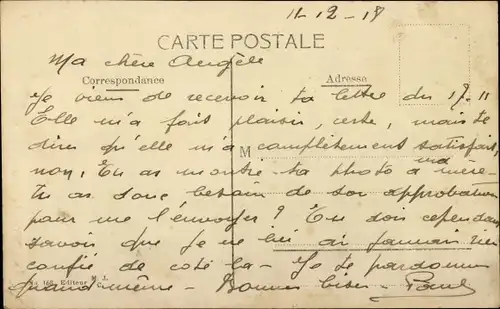 11-12-18
CARTE POSTALE
Ma chère Angèle
Correspondance
Adresse
Je viens de recevoir ta lettre du 17.11
Elle m'a fait plaisir, certe, mais te
dire qu'elle m'a complètement satisfait,
M
non, Tu as montré ta photo à ma mère-
tu as donc besoin de son approbation
pour me l'envoyer? Tu dois cependant
savoir que je ne lui ai jamais rien
confié de coté là- Je te pardonne
quand-même - Bonnes bises - Paul
No 168. Editeur